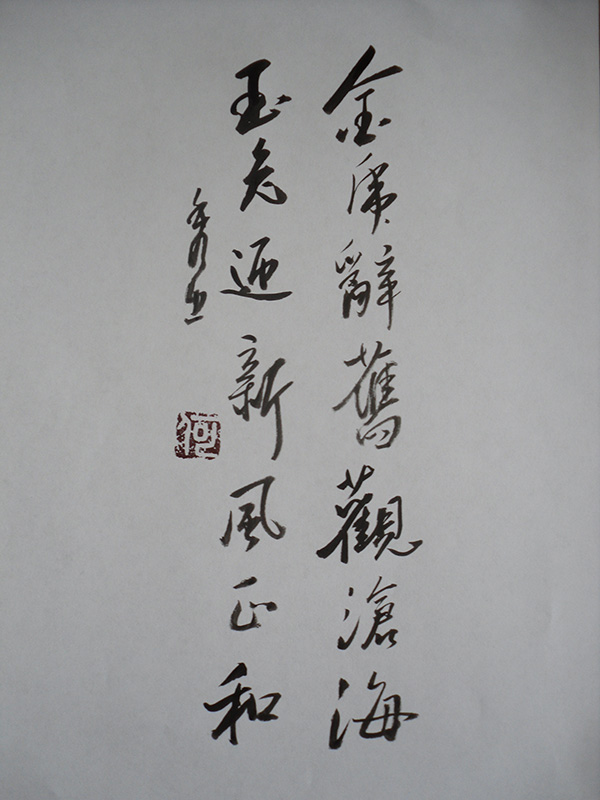 金虎辭舊觀滄海
玉兔迎新風正和
秀山
何